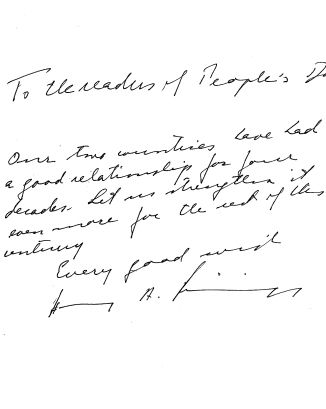 To the readers of People's Da
Our two countries have had
a good relationship for four
decades. Let us strengthen it
even more for the rest of this
century
Every good wish
H A. Kissinger